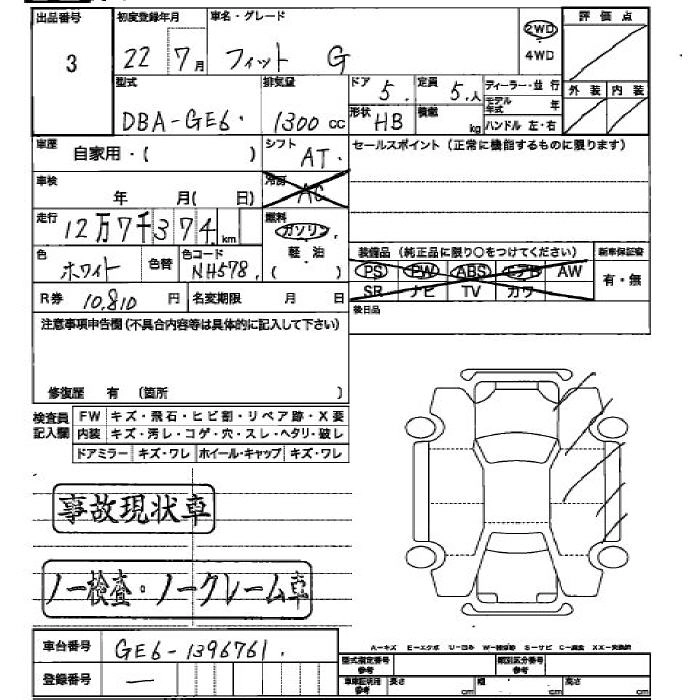 出品番号 初度登録年月 車名・グレード 評価点
3 22 7月 フィット G 2WD 4WD
型式 排気量 ドア 定員 ディーラー・並行 外装 内装
DBA-GE6. 1300cc 5. 5.人 モデル年式 年
形状 HB 積載 kg ハンドル 左・右
車歴 自家用・( ) シフト AT. セールスポイント(正常に機能するものに限ります)
車検 年 月(日) 冷房 AC
走行 12万7千374km 燃料 ガソリン. 軽油 ( )
色 ホワイト 色替 色コード NH578. 装備品(純正品に限り○をつけてください) 新車保証書
PS PW ABS エアB AW 有・無
SR ナビ TV カワ
R券 10,810円 名変期限 月 日 後日品
注意事項申告欄(不具合内容等は具体的に記入して下さい)
修復歴 有 (箇所 )
検査員記入欄 FW キズ・飛石・ヒビ割・リペア跡・X要
内装 キズ・汚レ・コゲ・穴・スレ・ヘタリ・破レ
ドアミラー キズ・ワレ ホイール・キャップ キズ・ワレ
事故現状車
ノー検査・ノークレーム車
車台番号 GE6-1396761.
A-キズ E-エクボ U-ヨネ S-サビ C-腐食
登録番号 —
型式指定番号 参考 類別区分番号 参考
車庫証明用 参考 長さ cm 幅 cm 高さ cm